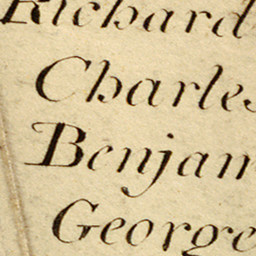 Richard
Charles
Benjam
George